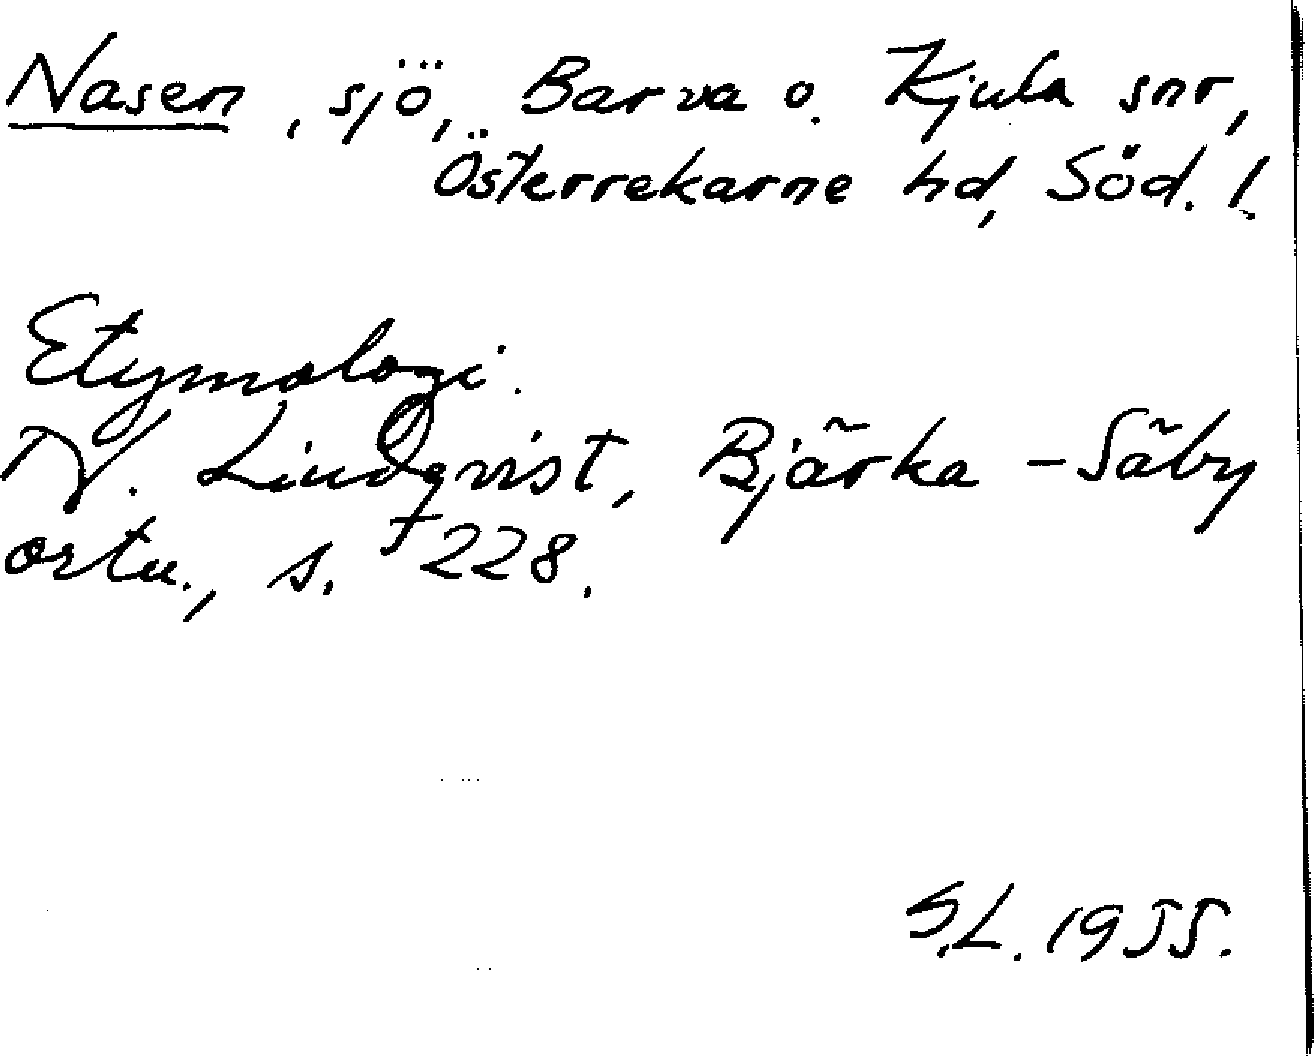 Nasen, sjö, Barva o. Kjula snr,
Österrekarne hd, Söd. l.
Etymologi.
Lindqvist, Bjärka-Säby
ortn., s. 228.
S.L. 1955.